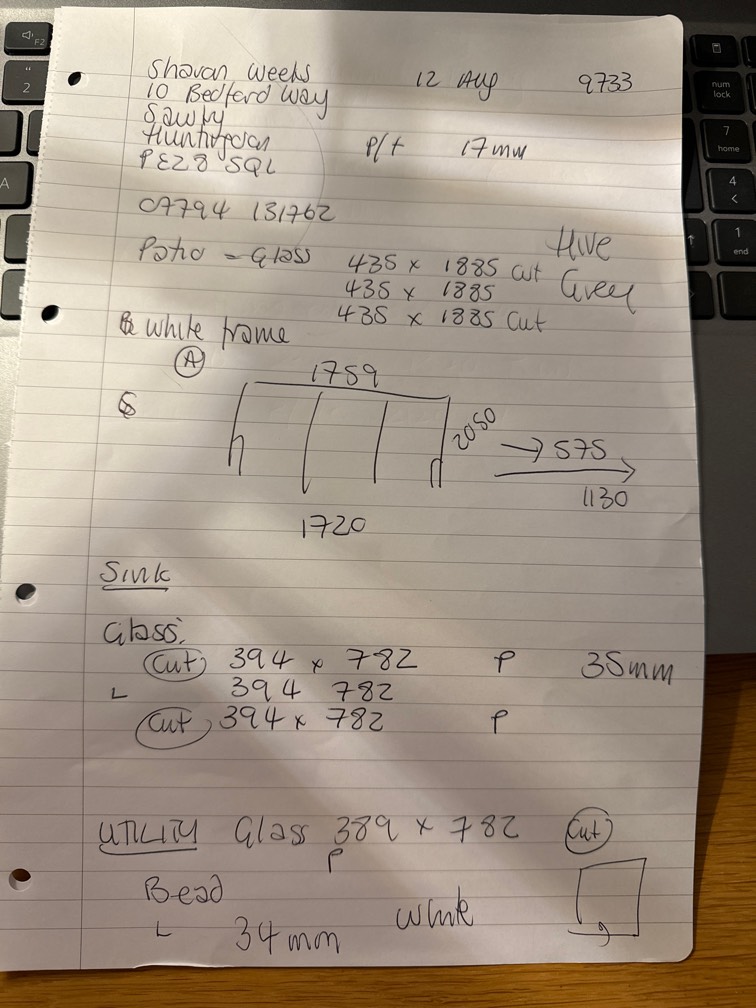 Sharan Weeks 12 Aug 9733
10 Bedford Way
Sawtry
Huntingdon P/t 17mm
PE28 5QL
07794 131762
Patio - Glass 435 x 1885 cut Hive
435 x 1885 Grey
435 x 1885 Cut
white frame
A
1759
2050
→ 575
1130
1720
Sink
Glass:
Cut 394 x 782 P 35mm
L 394 782
Cut 394 x 782 P
UTILITY Glass 389 x 782 Cut
P
Bead
L 34mm white
F2
"
2
A
num
lock
7
home
4
<
1
end